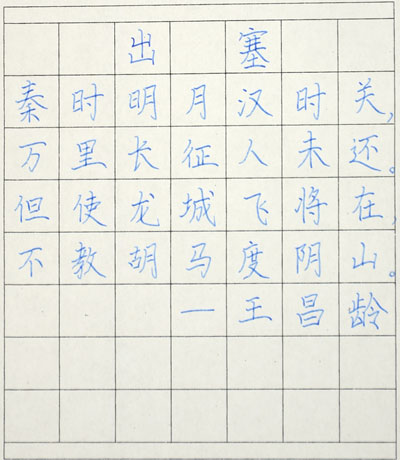 出塞
秦时明月汉时关,
万里长征人未还。
但使龙城飞将在,
不教胡马度阴山。
一王昌龄